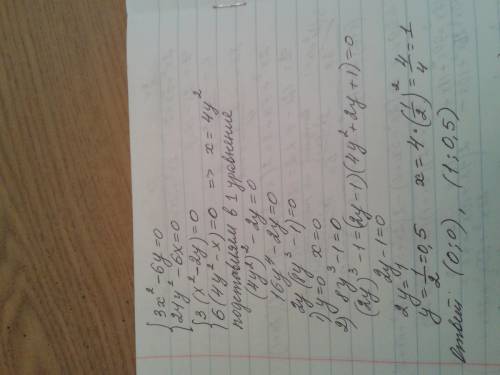 {3x²-6y=0
{24y²-6x=0
{3(x²-2y)=0
{6(4y²-x)=0 => x=4y²
подставляем в 1 уравнение
(4y²)²-2y=0
16y⁴-2y=0
2y(8y³-1)=0
1) y=0 x=0
2) 8y³-1=0
(2y)³-1=(2y-1)(4y²+2y+1)=0
2y-1=0
2y=1
y=1/2=0,5 x=4*(1/2)²=4/4=1
Ответ: (0;0), (1;0,5)